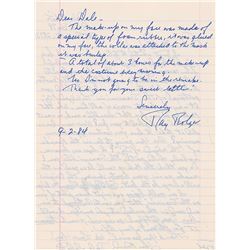 Dear Dale -
The make-up on my face was made of
a special type of foam rubber, it was glued
on my face, the cola was attached to the mask
it was burlap
- A total of about 3 hours for the make up
and the costume every morning.
No I'm not going to be in the remake.
Thank you for your sweet letter
Sincerely
Ray Bolger
9-2-84